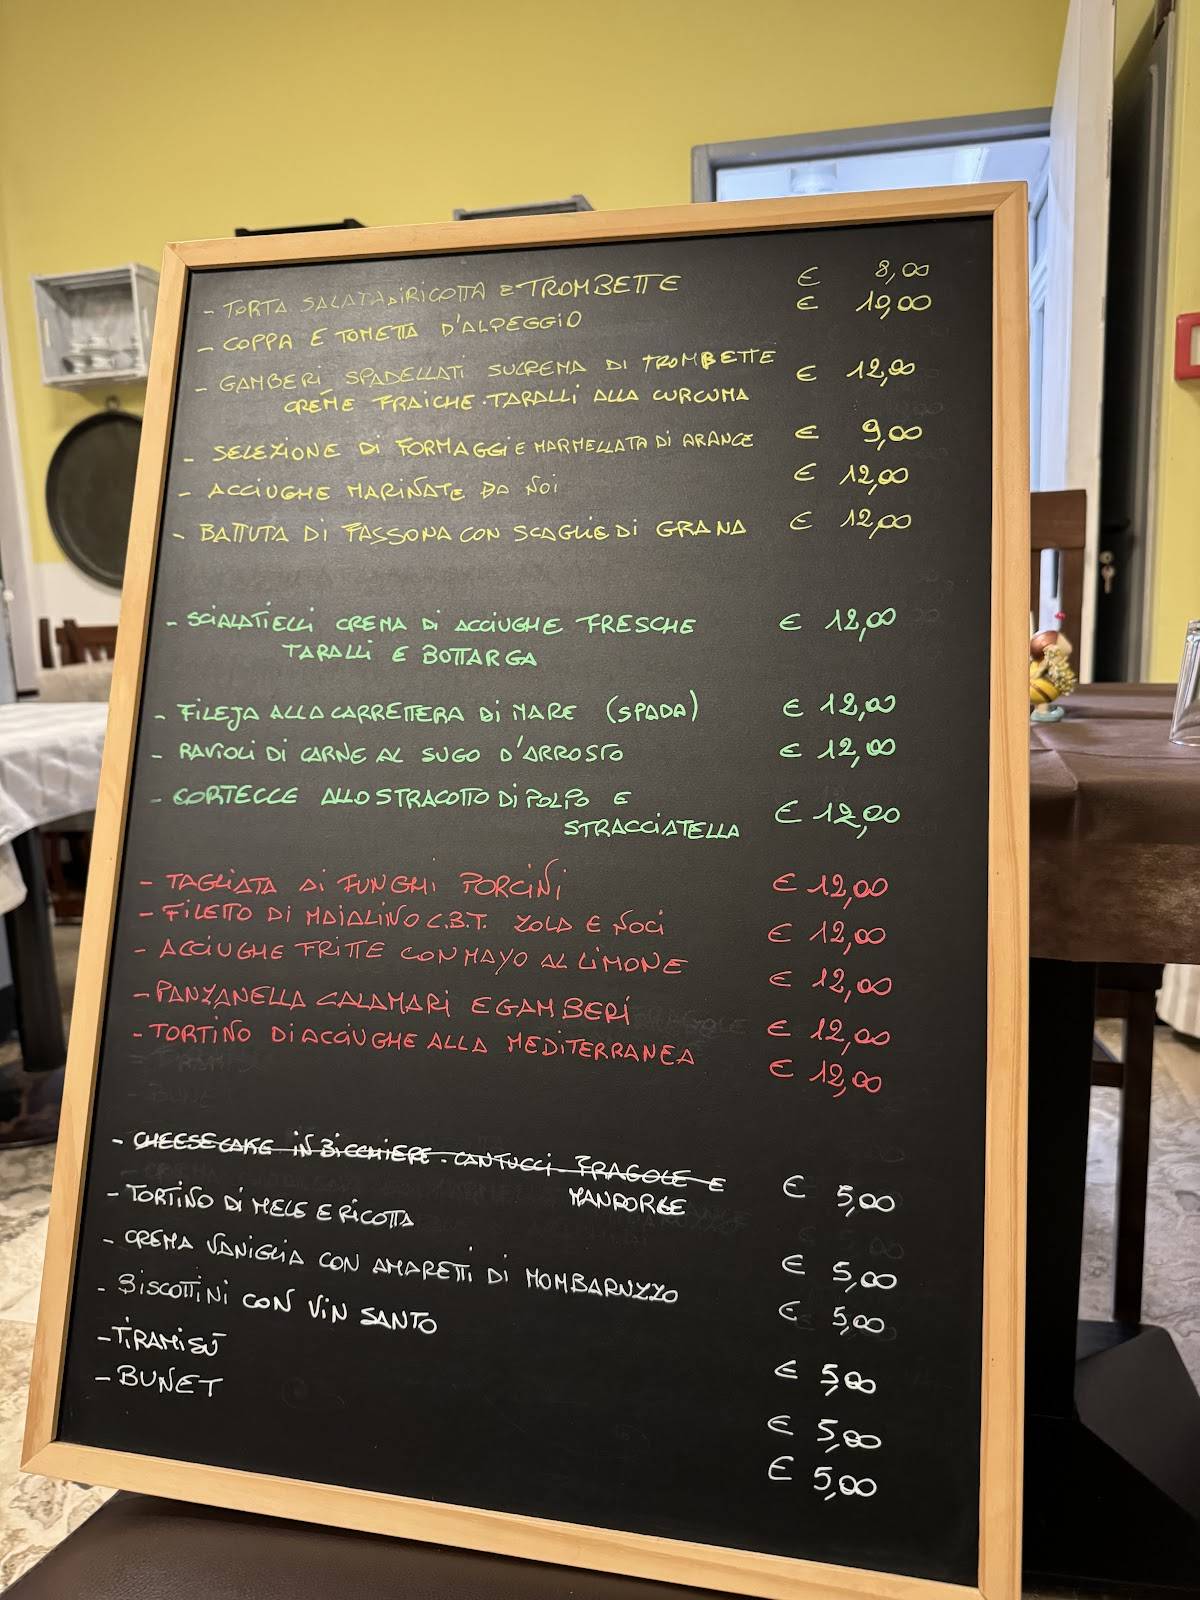 - TORTA SALATA DI RICOTTA E TROMBETTE € 8,00
- COPPA E TOMETTA D'ALPEGGIO € 10,00
- GAMBERI SPADELLATI SU CREMA DI TROMBETTE € 12,00
CREME FRAICHE. TARALLI ALLA CURCUMA
- SELEZIONE DI FORMAGGI E MARMELLATA DI ARANCE € 9,00
- ACCIUGHE MARINATE DA NOI € 12,00
- BATTUTA DI FASSONA CON SCAGLIE DI GRANA € 12,00
- SCIALATIELLI CREMA DI ACCIUGHE FRESCHE € 12,00
TARALLI E BOTTARGA
- FILEJA ALLA CARRETTERA DI MARE (SPADA) € 12,00
- RAVIOLI DI CARNE AL SUGO D'ARROSTO € 12,00
- CORTECCE ALLO STRACOTTO DI POLPO E € 12,00
STRACCIATELLA
- TAGLIATA DI FUNGHI PORCINI € 12,00
- FILETTO DI MAIALINO C.B.T. ZOLA E NOCI € 12,00
- ACCIUGHE FRITTE CON MAYO AL LIMONE € 12,00
- PANZANELLA CALAMARI E GAMBERI € 12,00
- TORTINO DI ACCIUGHE ALLA MEDITERRANEA € 12,00
- CHEESECAKE IN BICCHIERE. CANTUCCI. FRAGOLE E € 5,00
MANDORLE
- TORTINO DI MELE E RICOTTA € 5,00
- CREMA VANIGLIA CON AMARETTI DI MOMBARUZZO € 5,00
- BISCOTTINI CON VIN SANTO € 5,00
- TIRAMISÙ € 5,00
- BUNET € 5,00